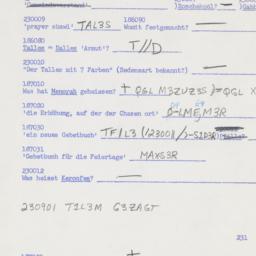 230009 186090
'prayer shawl' TAL3S Womit festgemacht?
186080
Tallen = Dalles 'Armut'? T//D
230010
"Der Talles mit 7 Farben" (Redensart bekannt?) —
187010
Was hat Menorah geheissen? + QGL M3ZUZ3S )=QGL X
187020
'die Erhöhung, auf der der Chasen ort'
187030
'ein neues Gebetbuch' TF/L3
187031
'Gebetbuch für die Feiertage' MAXS3R
230012
Was heisst Keronfem? —
230901 T1L3M G3ZAGT
231